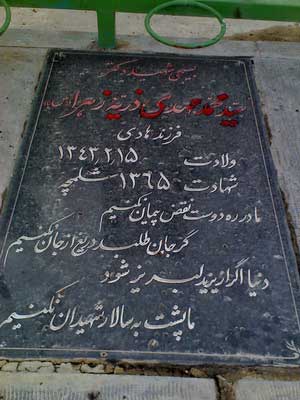 بسیجی شهید دکتر
سید محمد مهدی ذریه زهرا
فرزند هادی
ولادت ۱۳۴۳٫۲٫۱۵
شهادت ۱۳۶۵ شلمچه
ما در ره دوست نقض پیمان نکنیم
گر جان طلبد دریغ از جان نکنیم
دنیا اگر از یزید لبریز شود
ما پشت به سالار شهیدان نکنیم